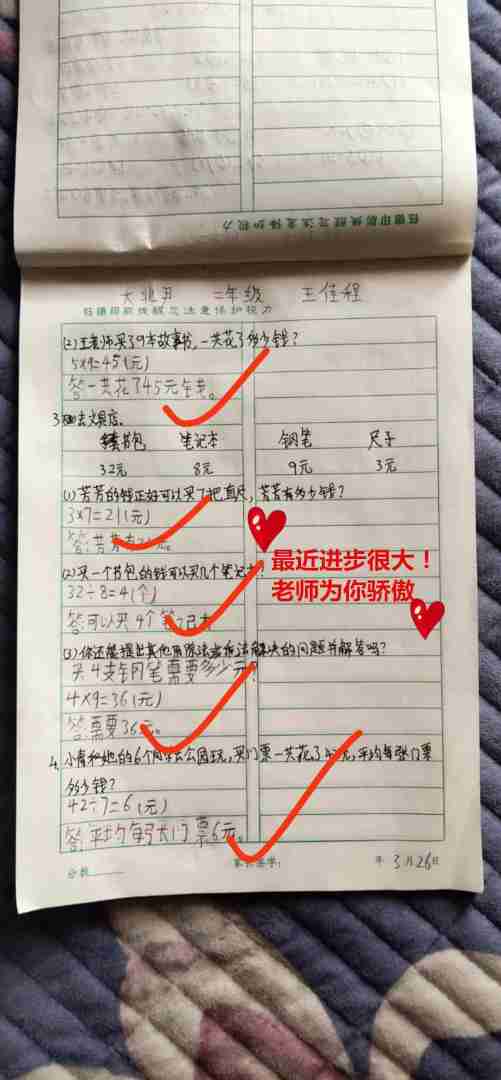 二年级 王佳程
(2)王老师买了9本故事书,一共花了多少钱?
5×9=45(元)
答一共花了45元钱。
3. 去文具店。
书包 笔记本 钢笔 尺子
32元 8元 9元 3元
(1)芳芳的钱正好可以买7把直尺,芳芳有多少钱?
3×7=21(元)
答:芳芳有
(2)买一个书包的钱可以买几个笔记本?
32÷8=4(个)
答可以买4个笔记本
最近进步很大!
老师为你骄傲
(3)你还能提出其他用除法或乘法解决的问题并解答吗?
买4支钢笔需要多少元?
4×9=36(元)
答:需要36元。
4. 小青和她的6个同学去公园玩,买门票一共花了42元,平均每张门票
多少钱?
42÷7=6(元)
答:平均每张门票6元。
分数 家长签字: 年3月26日